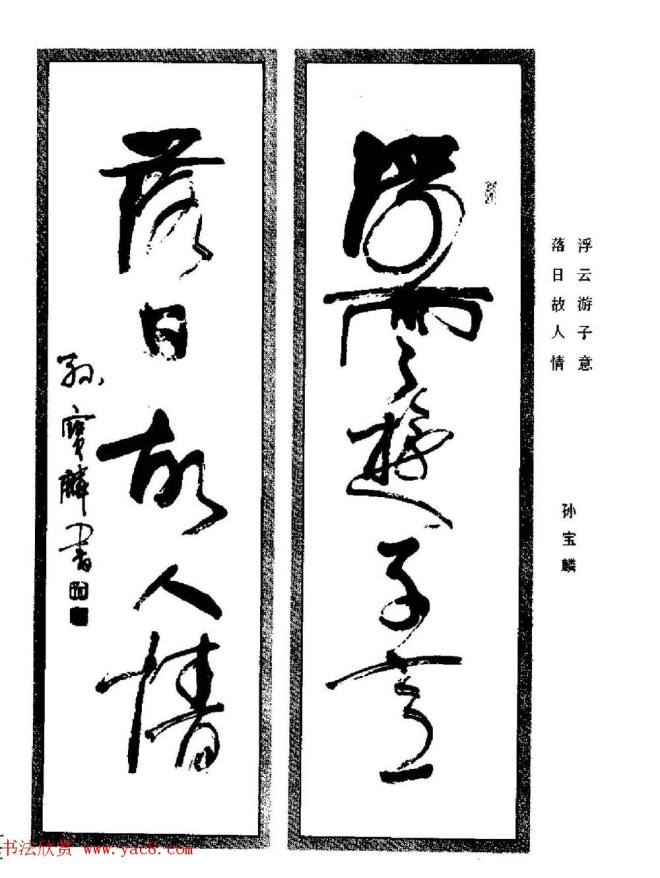 浮云游子意
落日故人情
孙宝麟
浮雲遊子意
落日故人情
孙寶麟書
书法欣赏 www.yac8.com